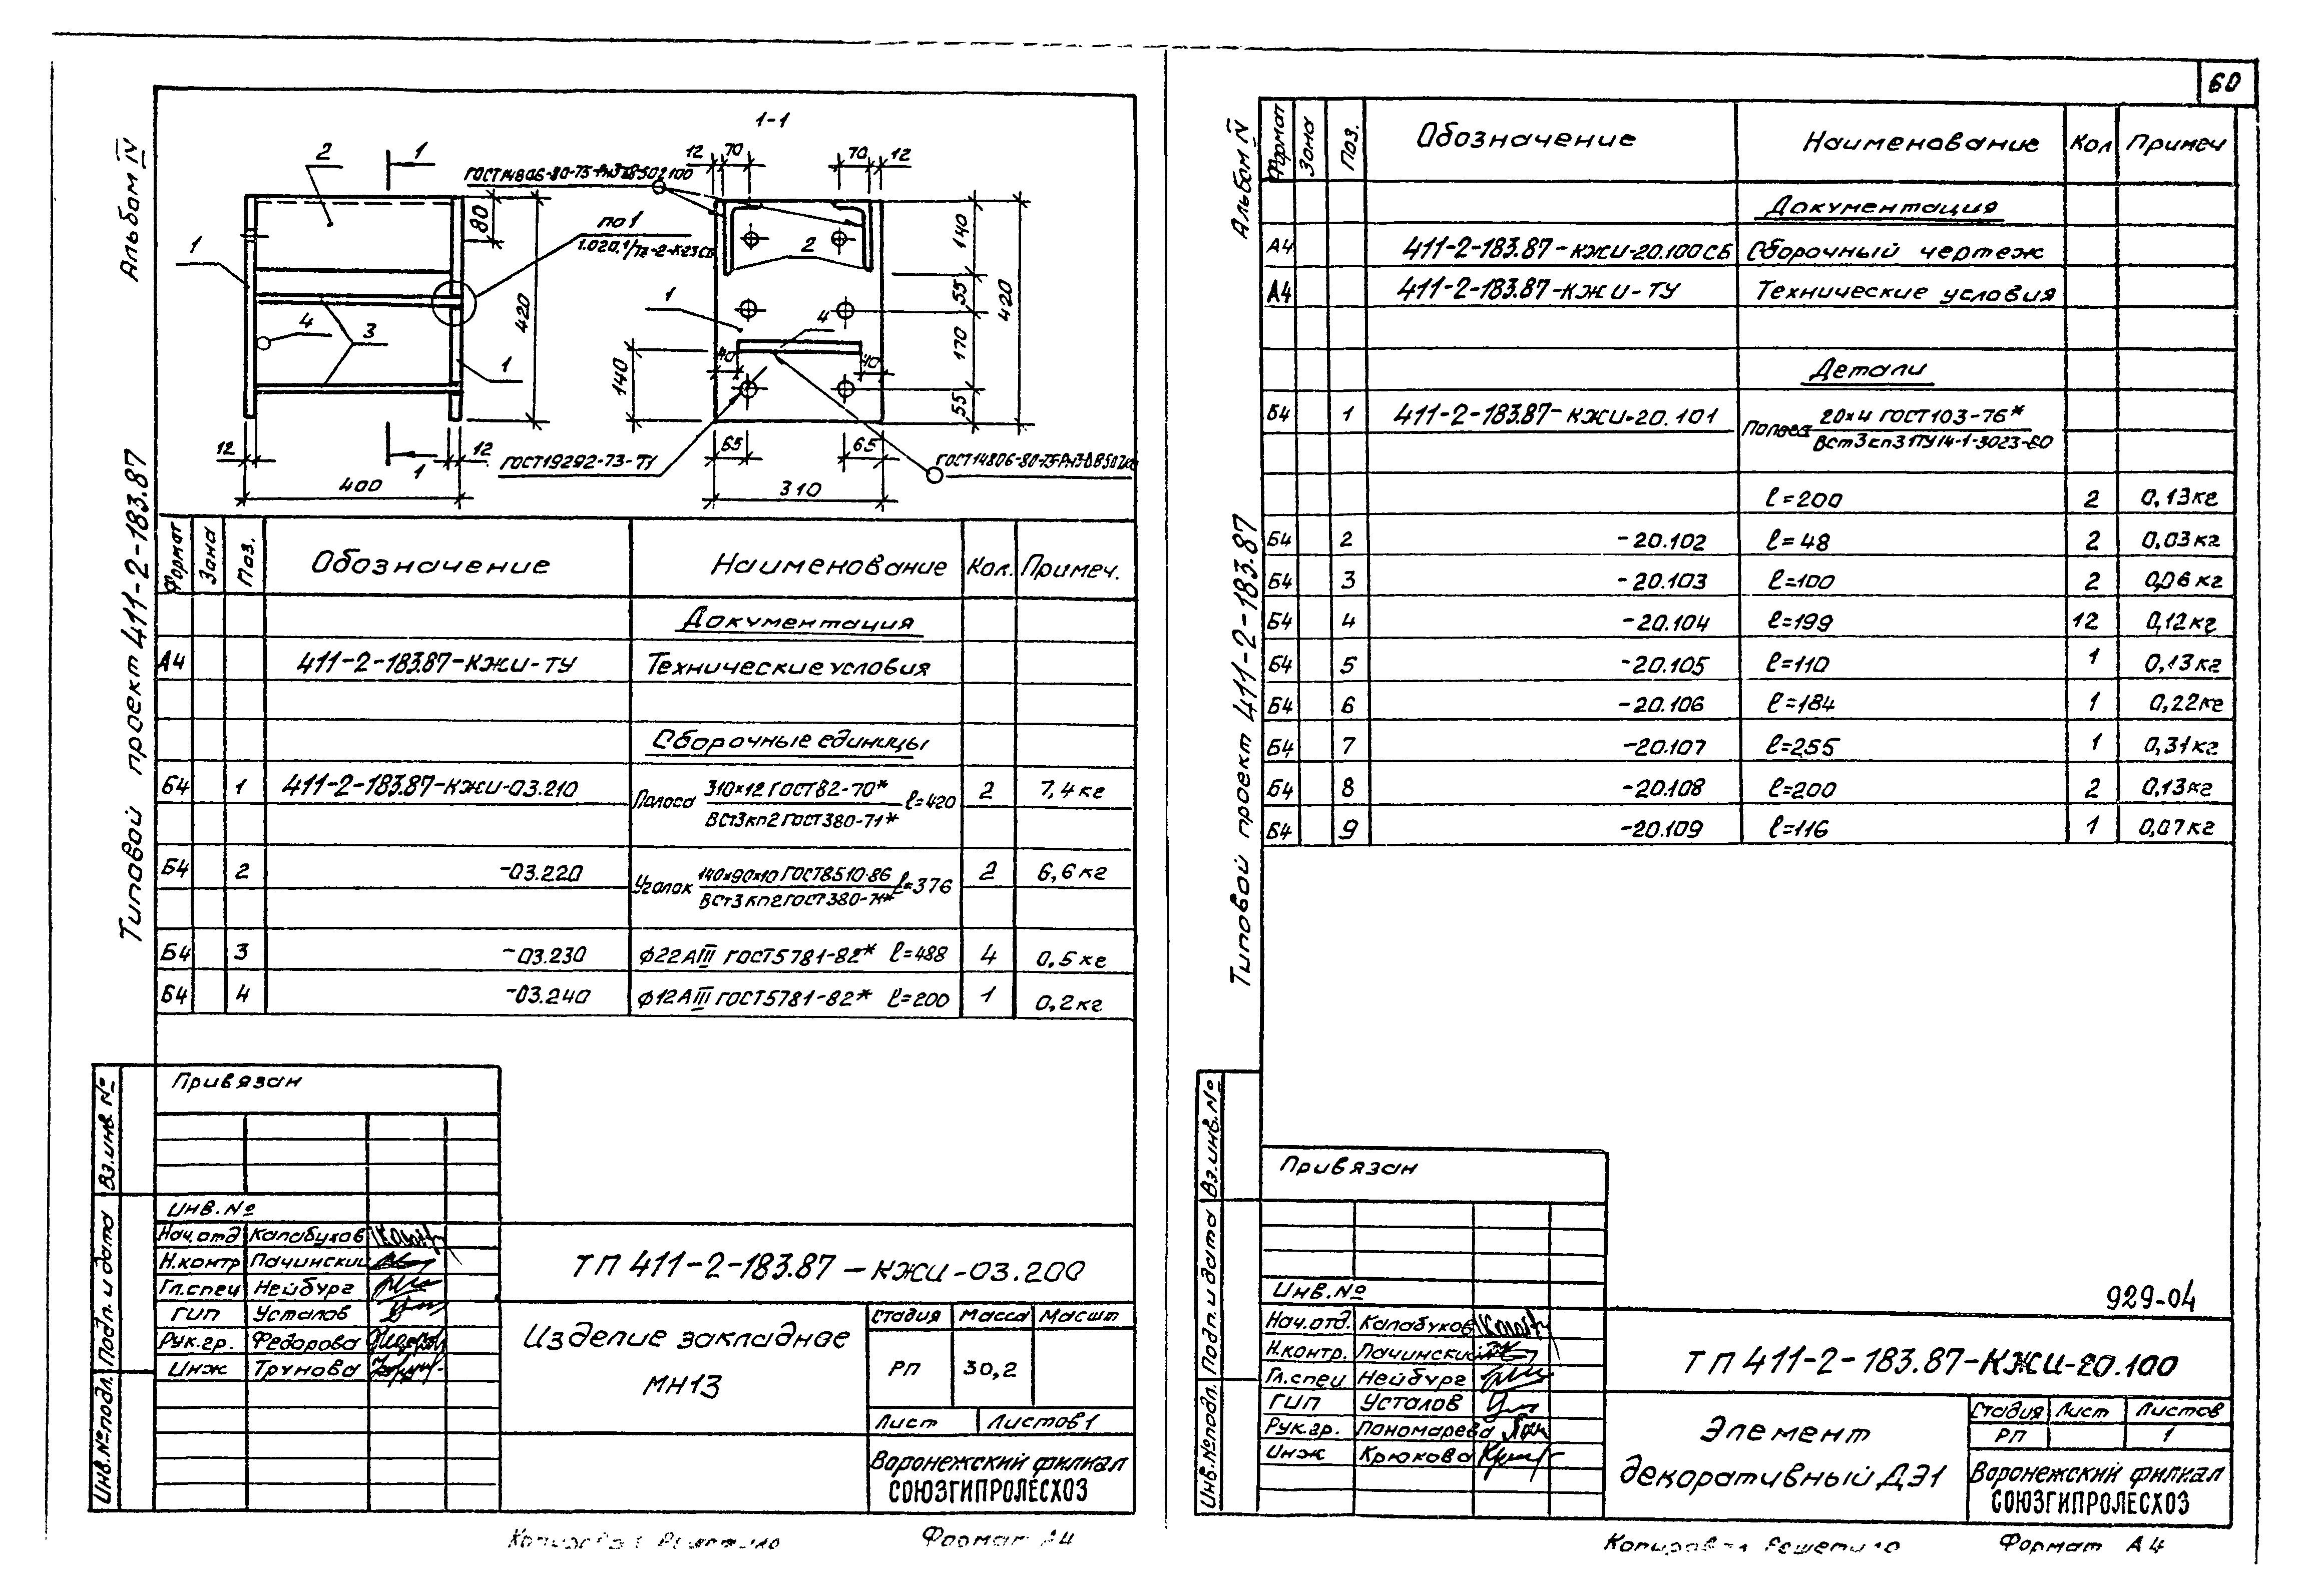 60
Альбом IV
Типовой проект 411-2-183.87
1-1
2
1
12 70 70 12
ГОСТ14806-80-Т5-
80
420
по 1
1.020.1/
1
4
3
1
12
400
12
1
2
1
4
140
55
170
55
420
140
40
40
65
65
310
ГОСТ19292-73-Т1
ГОСТ14806-80-Т5-
Формат Зона Поз. Обозначение Наименование Кол. Примеч.
Документация
А4 411-2-183.87-КЖИ-ТУ Технические условия
Сборочные единицы
Б4 1 411-2-183.87-КЖИ-03.210 Полоса 310×12 ГОСТ82-70* ℓ=420 2 7,4кг
ВСт3кп2ГОСТ380-71*
Б4 2 -03.220 Уголок 140×90×10 ГОСТ8510-86 ℓ=376 2 6,6кг
ВСт3кп2ГОСТ380-71*
Б4 3 -03.230 ф22АIII ГОСТ5781-82* ℓ=488 4 0,5кг
Б4 4 -03.240 ф12АIII ГОСТ5781-82* ℓ=200 1 0,2кг
Привязан
Инв.№
Нач.отд Калабухов
Н.контр Пачинский
Гл.спец Нейбург
ГИП Усталов
Рук.гр. Федорова
Инж Трунова
Вз.инв.№
Подп. и дата
Инв.№подл.
ТП 411-2-183.87-КЖИ-03.200
Изделие закладное
МН13
Стадия Масса Масшт
РП 30,2
Лист Листов1
Воронежский филиал
СОЮЗГИПРОЛЕСХОЗ
Формат А4
Альбом IV
Типовой проект 411-2-183.87
Формат Зона Поз. Обозначение Наименование Кол Примеч
Документация
А4 411-2-183.87-КЖИ-20.100СБ Сборочный чертеж
А4 411-2-183.87-КЖИ-ТУ Технические условия
Детали
Б4 1 411-2-183.87-КЖИ-20.101 Полоса 20×4 ГОСТ103-76*
ВСт3кп3 1ТУ14-1-3023-80
ℓ=200 2 0,13кг
Б4 2 -20.102 ℓ=48 2 0,03кг
Б4 3 -20.103 ℓ=100 2 0,06кг
Б4 4 -20.104 ℓ=199 12 0,12кг
Б4 5 -20.105 ℓ=110 1 0,13кг
Б4 6 -20.106 ℓ=184 1 0,22кг
Б4 7 -20.107 ℓ=255 1 0,31кг
Б4 8 -20.108 ℓ=200 2 0,13кг
Б4 9 -20.109 ℓ=116 1 0,07кг
Привязан
Инв.№
Нач.отд. Калабухов
Н.контр. Пачинский
Гл.спец Нейбург
ГИП Усталов
Рук.гр. Пономарева
Инж Крюкова
Вз.инв.№
Подп. и дата
Инв.№подл.
929-04
ТП 411-2-183.87-КЖИ-20.100
Элемент
декоративный ДЭ1
Стадия Лист Листов
РП 1
Воронежский филиал
СОЮЗГИПРОЛЕСХОЗ
Формат А4